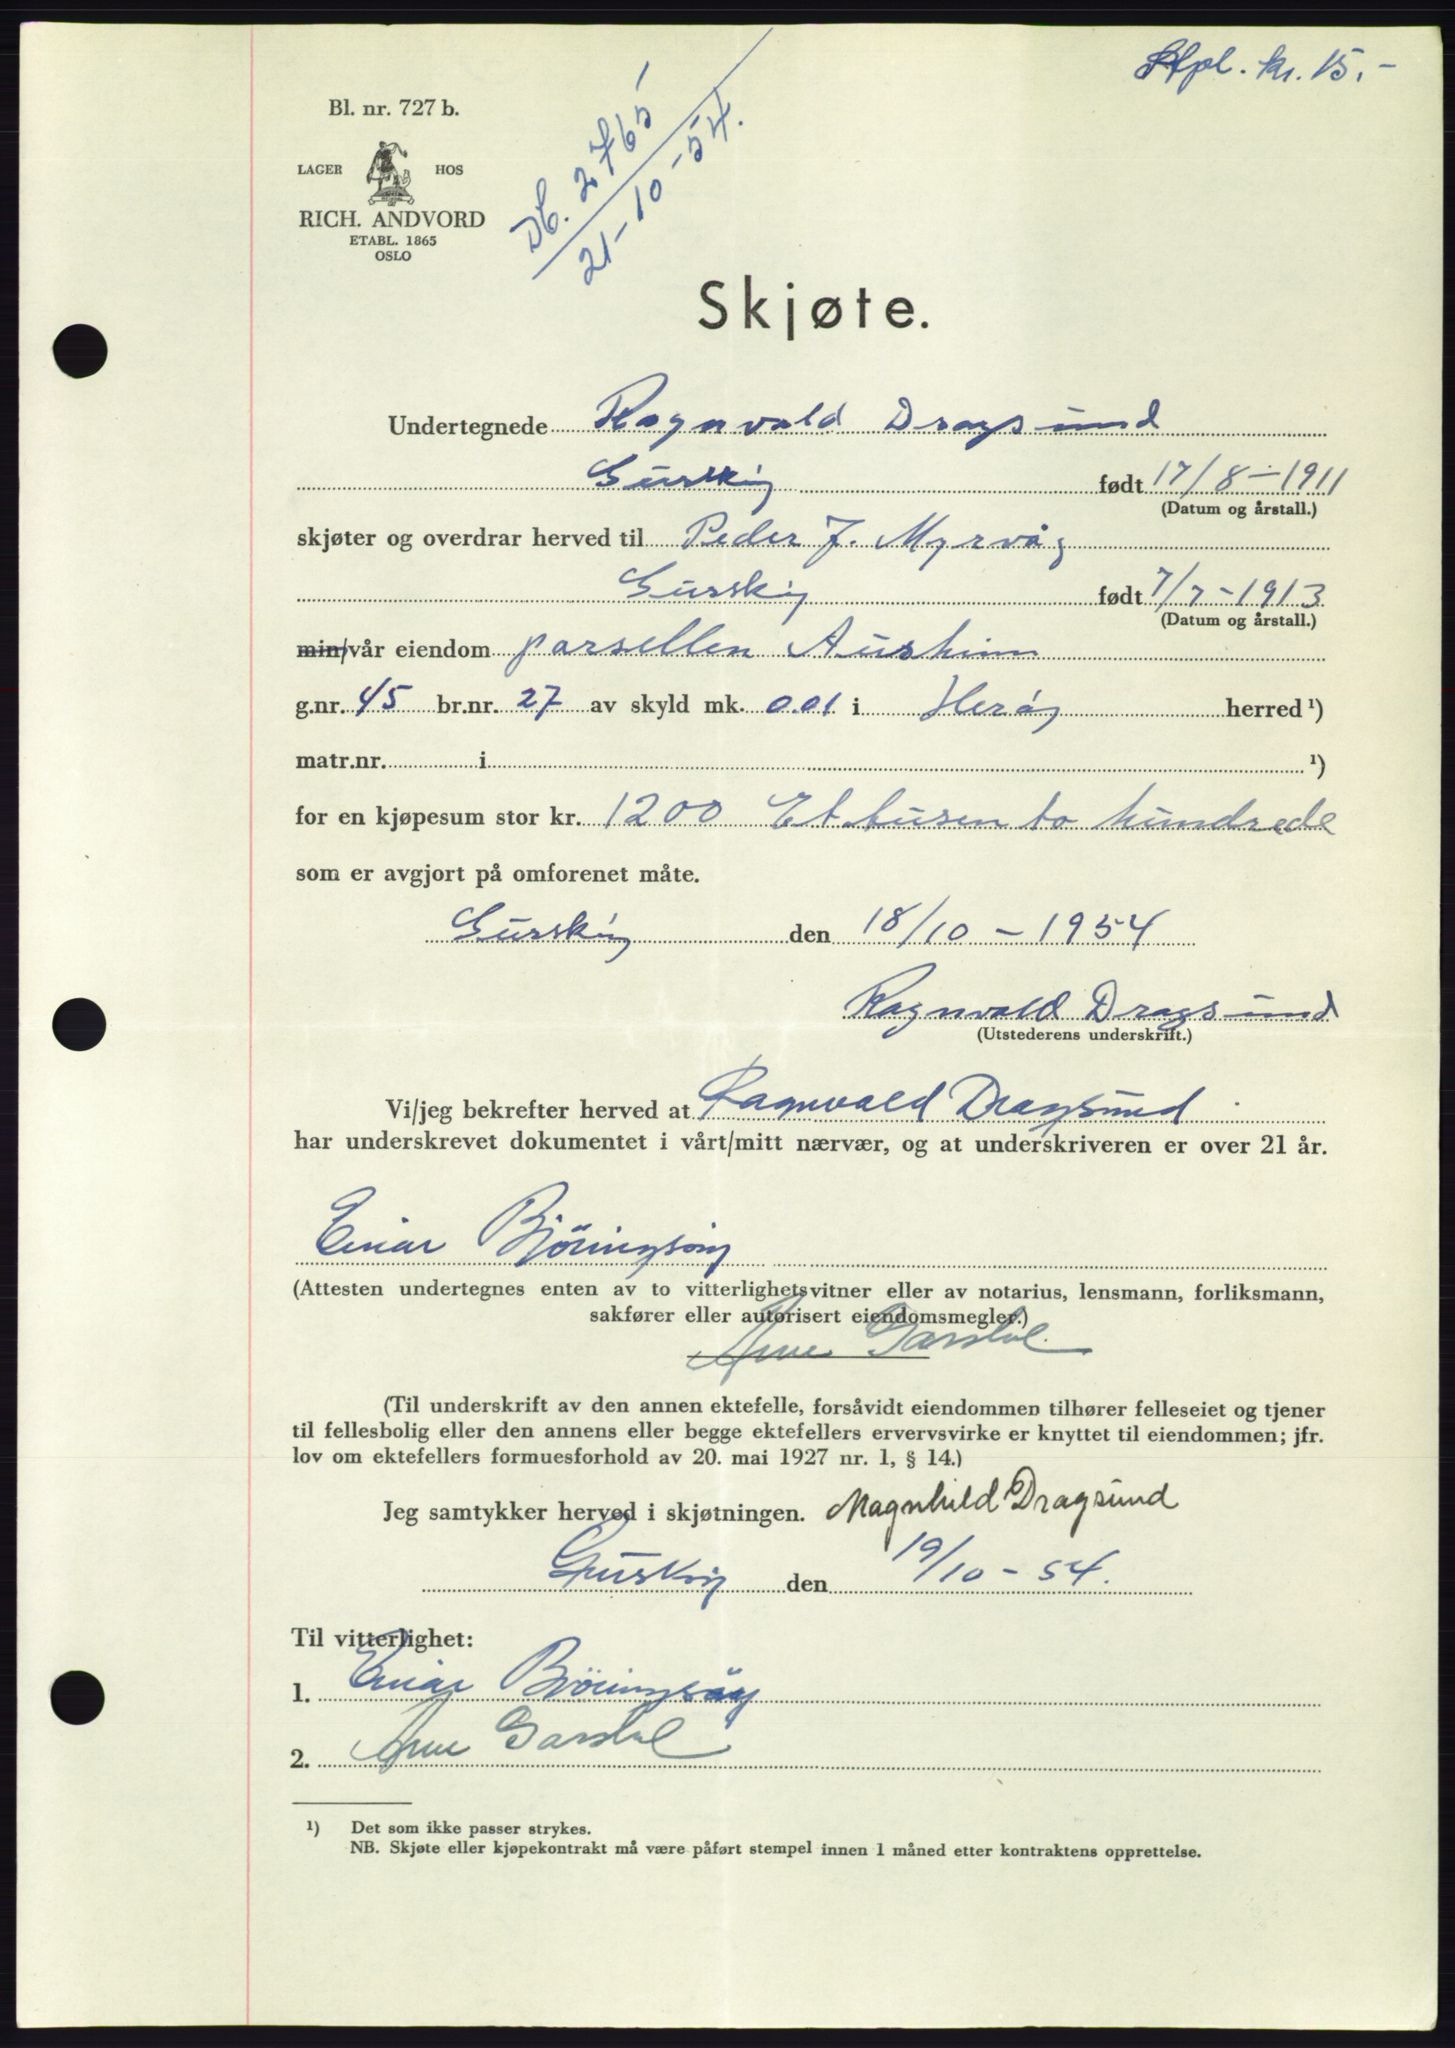 Stpl. kr. 15.-
Bl. nr. 727 b.
Db. 2765
21-10-54.
LAGER HOS
RICH. ANDVORD
ETABL. 1865
OSLO
Skjøte.
Undertegnede Ragnvald Dragsund
Gurskøy født 17/8-1911
(Datum og årstall.)
skjøter og overdrar herved til Peder J. Myrvåg
Gurskøy født 7/7-1913
(Datum og årstall.)
min/vår eiendom parsellen Ausheim
g.nr. 45 br.nr. 27 av skyld mk. 0.01 i Herøy herred ¹)
matr.nr. i ¹)
for en kjøpesum stor kr. 1200 Et tusen to hundrede
som er avgjort på omforenet måte.
Gurskøy den 18/10-1954
Ragnvald Dragsund
(Utstederens underskrift.)
Vi/jeg bekrefter herved at Ragnvald Dragsund
har underskrevet dokumentet i vårt/mitt nærvær, og at underskriveren er over 21 år.
Einar Björingsöy
(Attesten undertegnes enten av to vitterlighetsvitner eller av notarius, lensmann, forliksmann,
sakfører eller autorisert eiendomsmegler.)
Arne Garshol
(Til underskrift av den annen ektefelle, forsåvidt eiendommen tilhører felleseiet og tjener
til fellesbolig eller den annens eller begge ektefellers ervervsvirke er knyttet til eiendommen; jfr.
lov om ektefellers formuesforhold av 20. mai 1927 nr. 1, § 14.)
Jeg samtykker herved i skjøtningen. Magnhild Dragsund
Gurskøy den 19/10-54.
Til vitterlighet:
1. Einar Björingsöy
2. Arne Garshol
¹) Det som ikke passer strykes.
NB. Skjøte eller kjøpekontrakt må være påført stempel innen 1 måned etter kontraktens opprettelse.